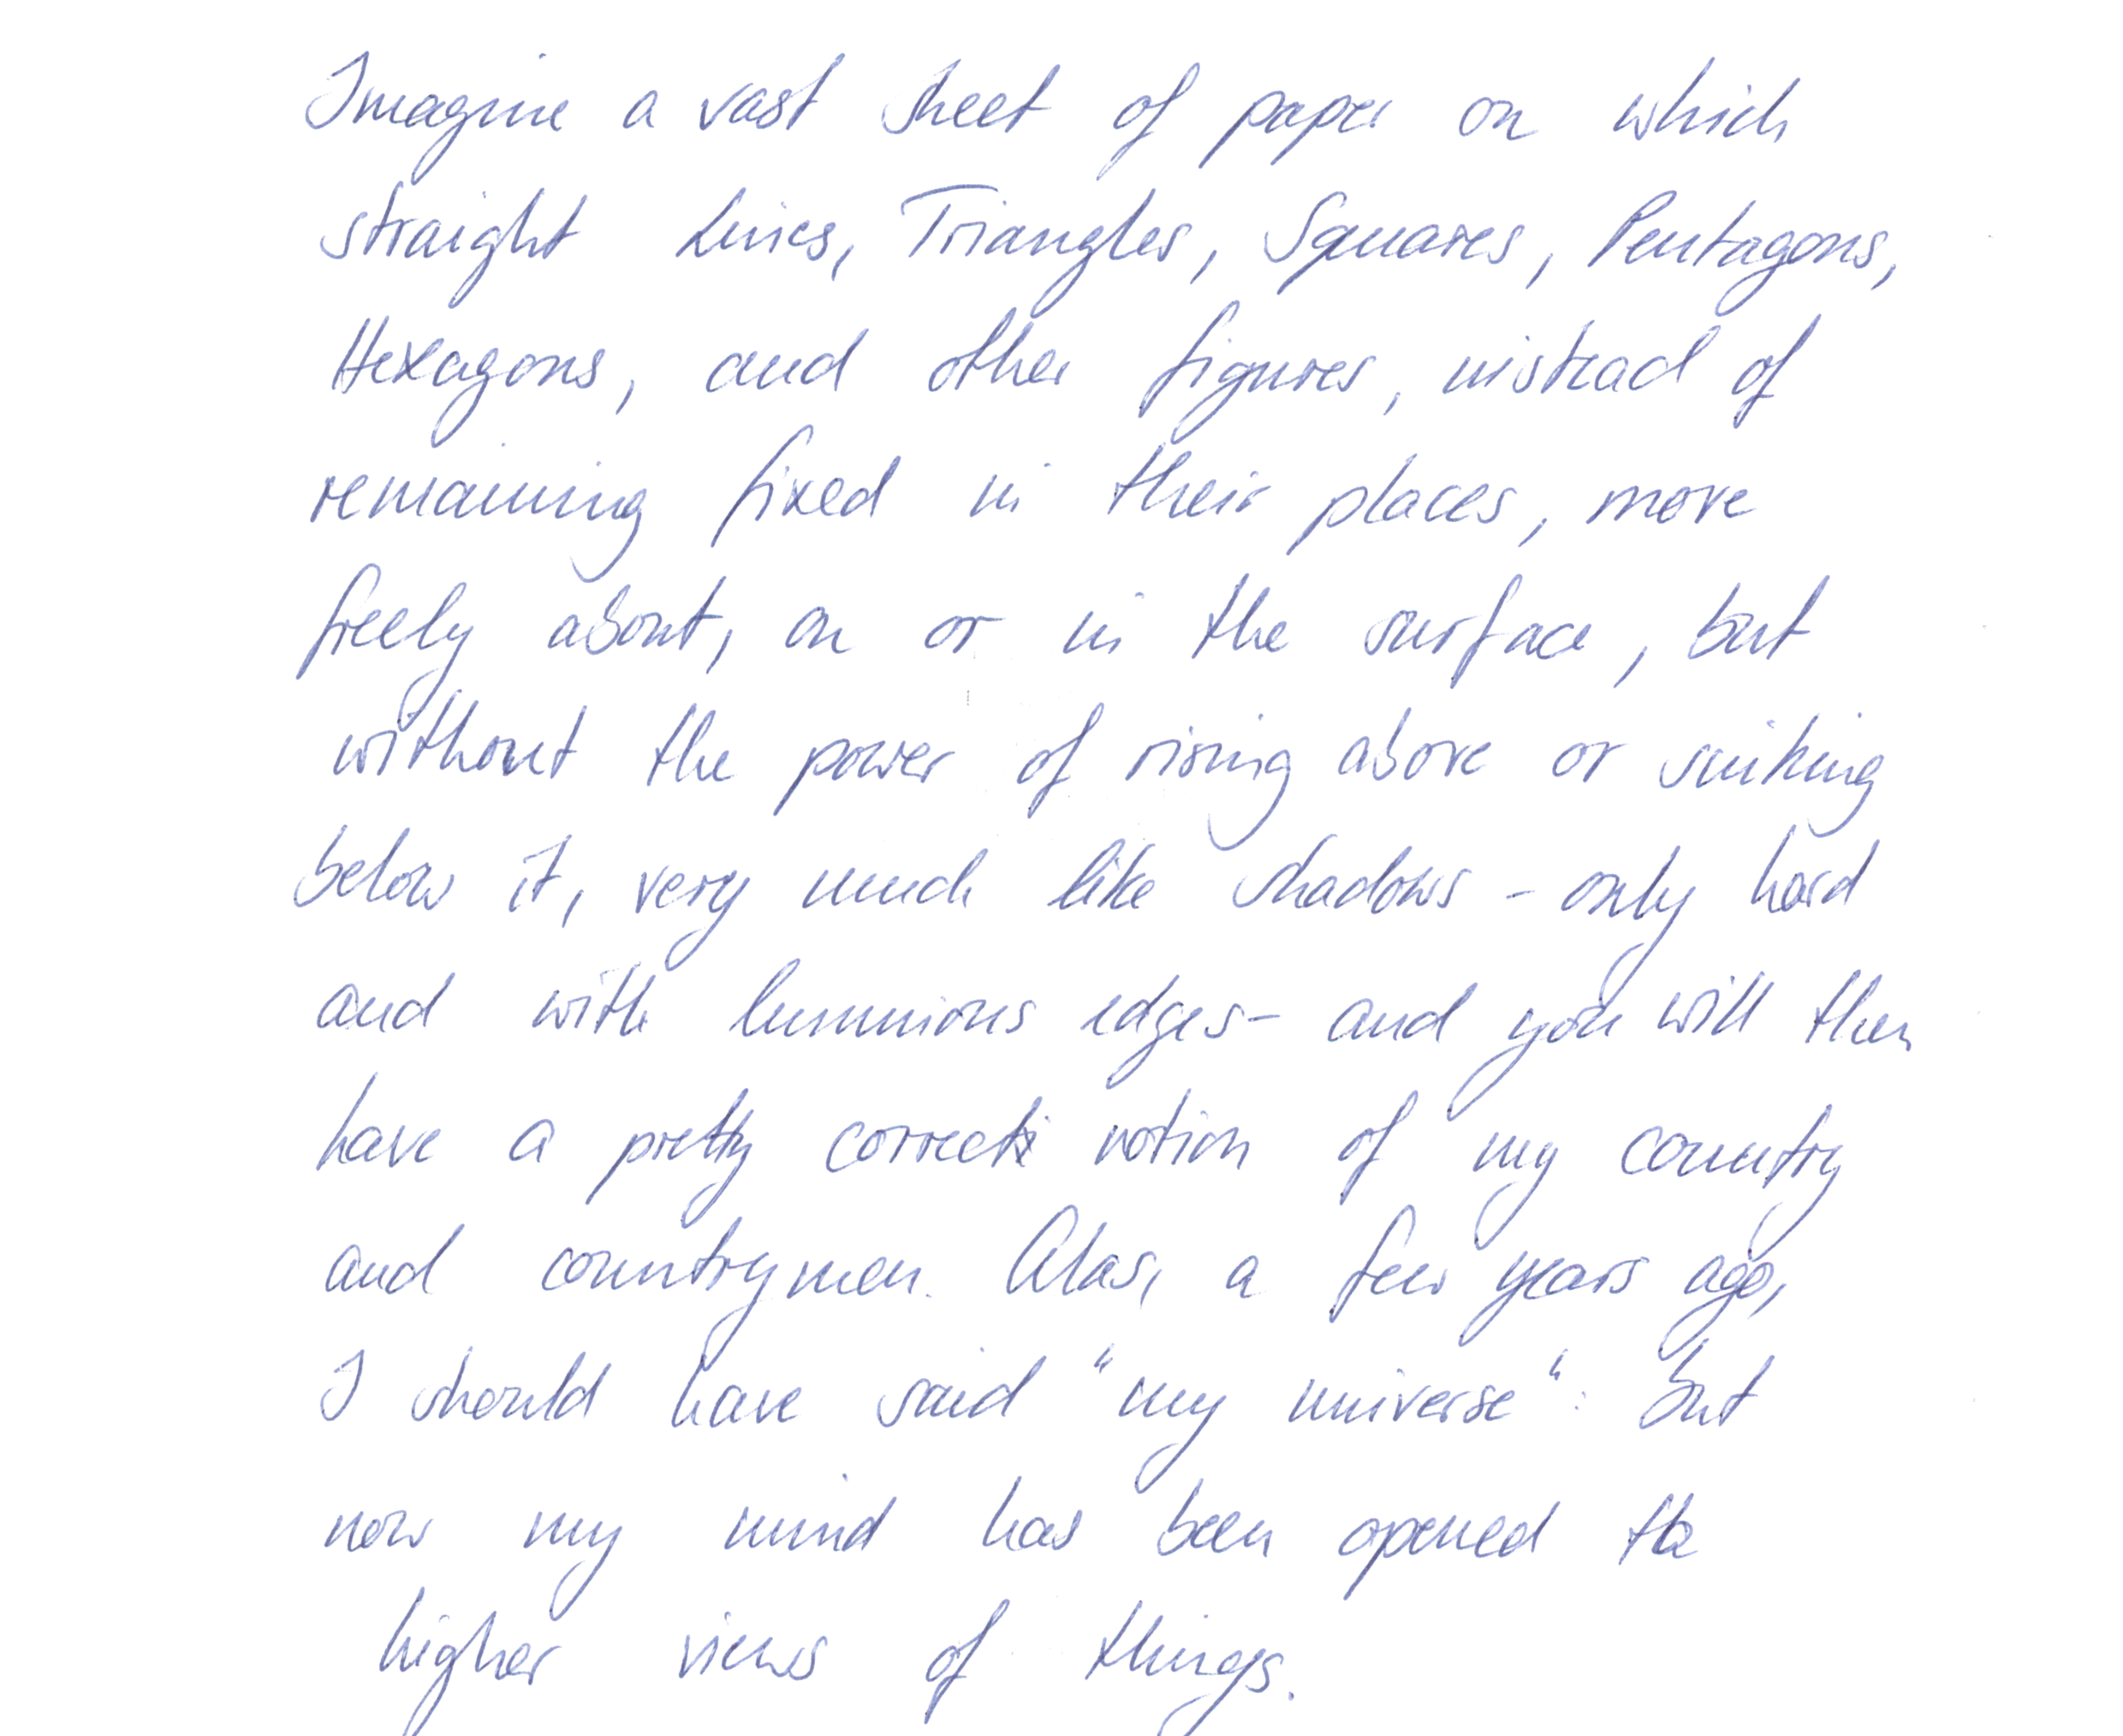 Imagine a vast sheet of paper on which
straight Lines, Triangles, Squares, Pentagons,
Hexagons, and other figures, instead of
remaining fixed in their places, move
freely about, on or in the surface, but
without the power of rising above or sinking
below it, very much like shadows - only hard
and with luminous edges - and you will then
have a pretty correct notion of my country
and countrymen. Alas, a few years ago,
I should have said "my universe": but
now my mind has been opened to
higher views of things.